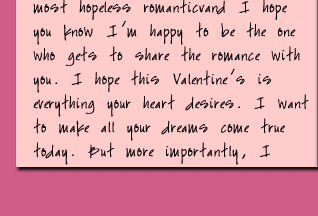 most hopeless romanticvand I hope
you know I'm happy to be the one
who gets to share the romance with
you. I hope this Valentine's is
everything your heart desires. I want
to make all your dreams come true
today. But more importantly, I